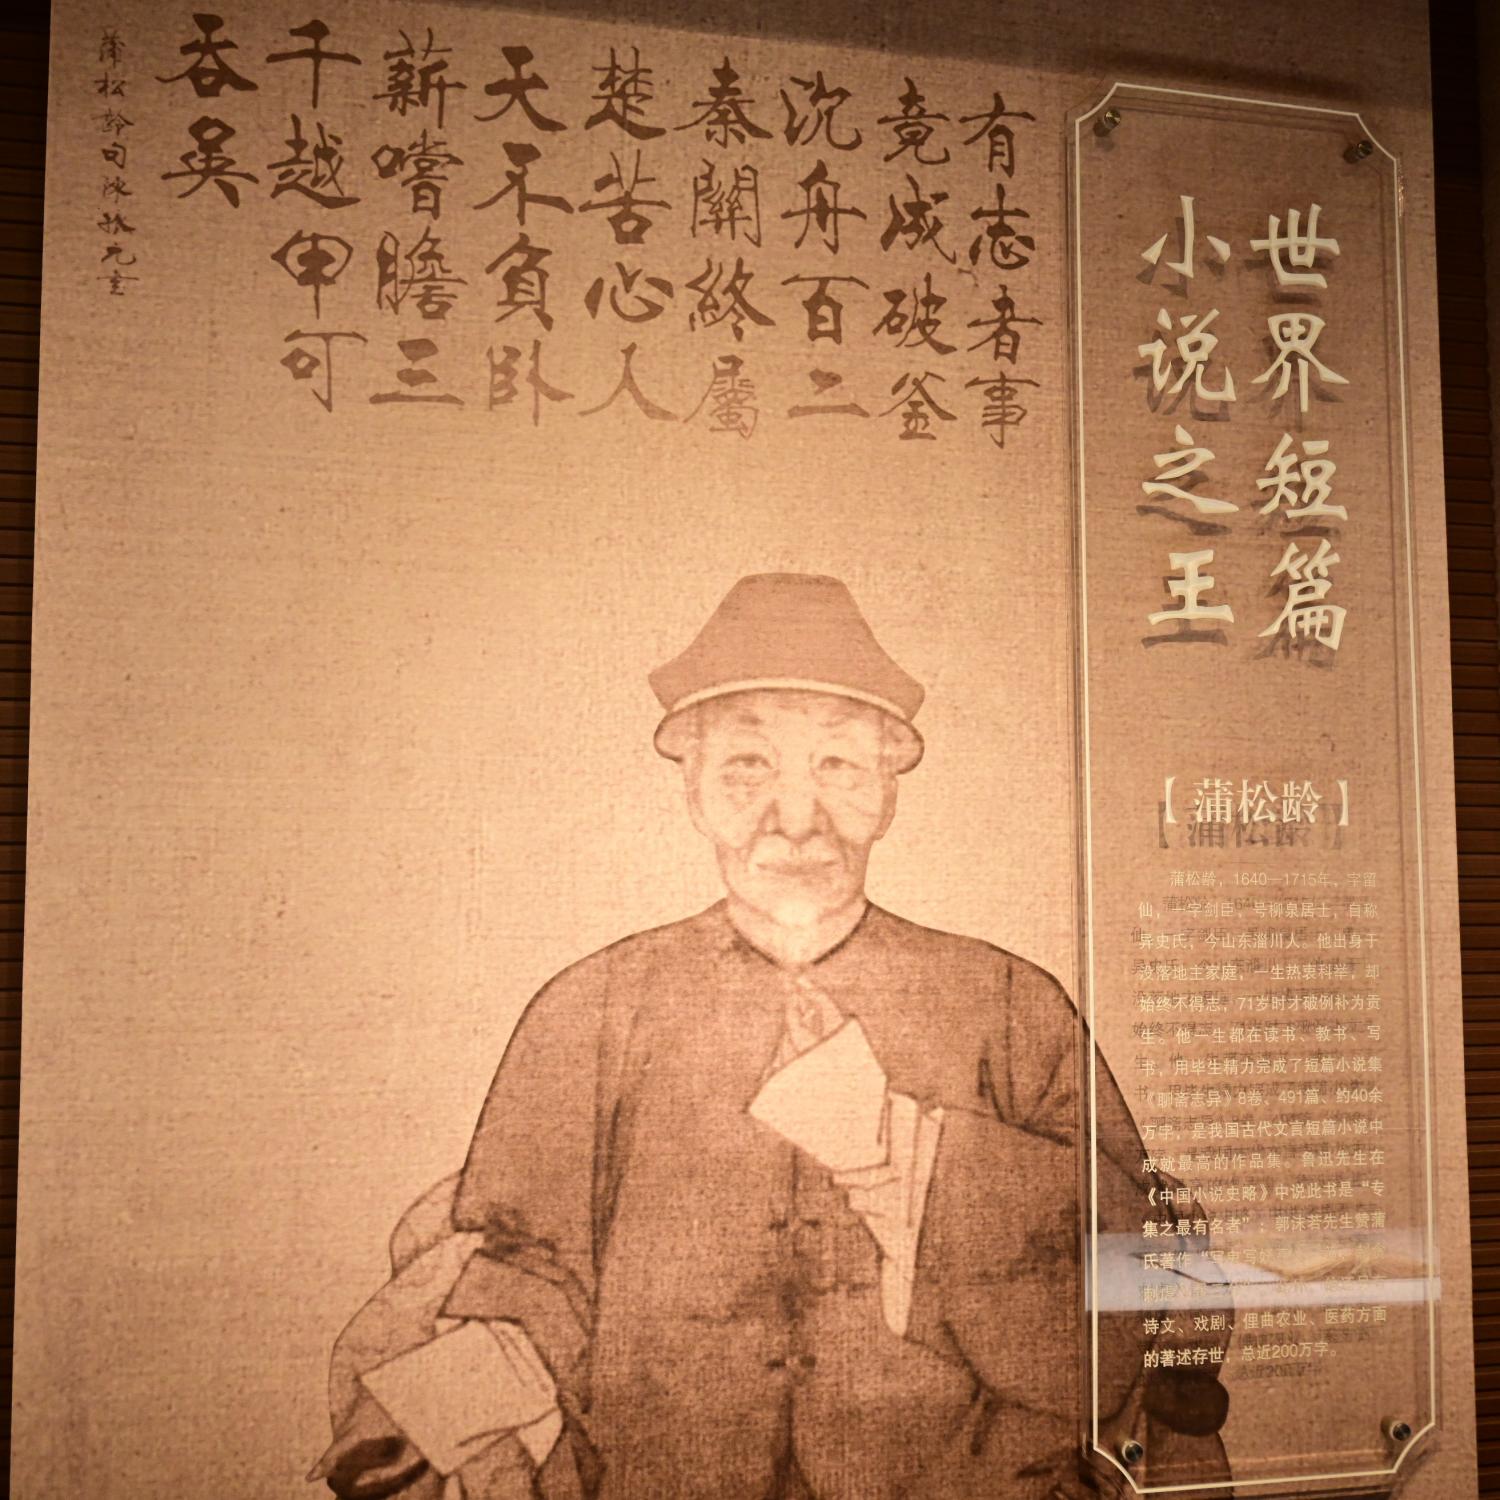 世界短篇
小说之王
【蒲松龄】
蒲松龄，1640—1715年，字留
仙，一字剑臣，号柳泉居士，自称
异史氏，今山东淄川人。他出身于
没落地主家庭，一生热衷科举，却
始终不得志，71岁时才破例补为贡
生。他一生都在读书、教书、写
书，用毕生精力完成了短篇小说集
《聊斋志异》8卷、491篇、约40余
万字，是我国古代文言短篇小说中
成就最高的作品集。鲁迅先生在
《中国小说史略》中说此书是“专
集之最有名者”；郭沫若先生赞蒲
氏著作“写鬼写妖
刺虐
诗文、戏剧、俚曲农业、医药方面
的著述存世，总近200万字。
有志者事
竟成破釜
沈舟百二
秦關終屬
楚苦心人
天不負卧
薪嚐膽三
千越甲可
吞吳
蒲松齡句陳振元書